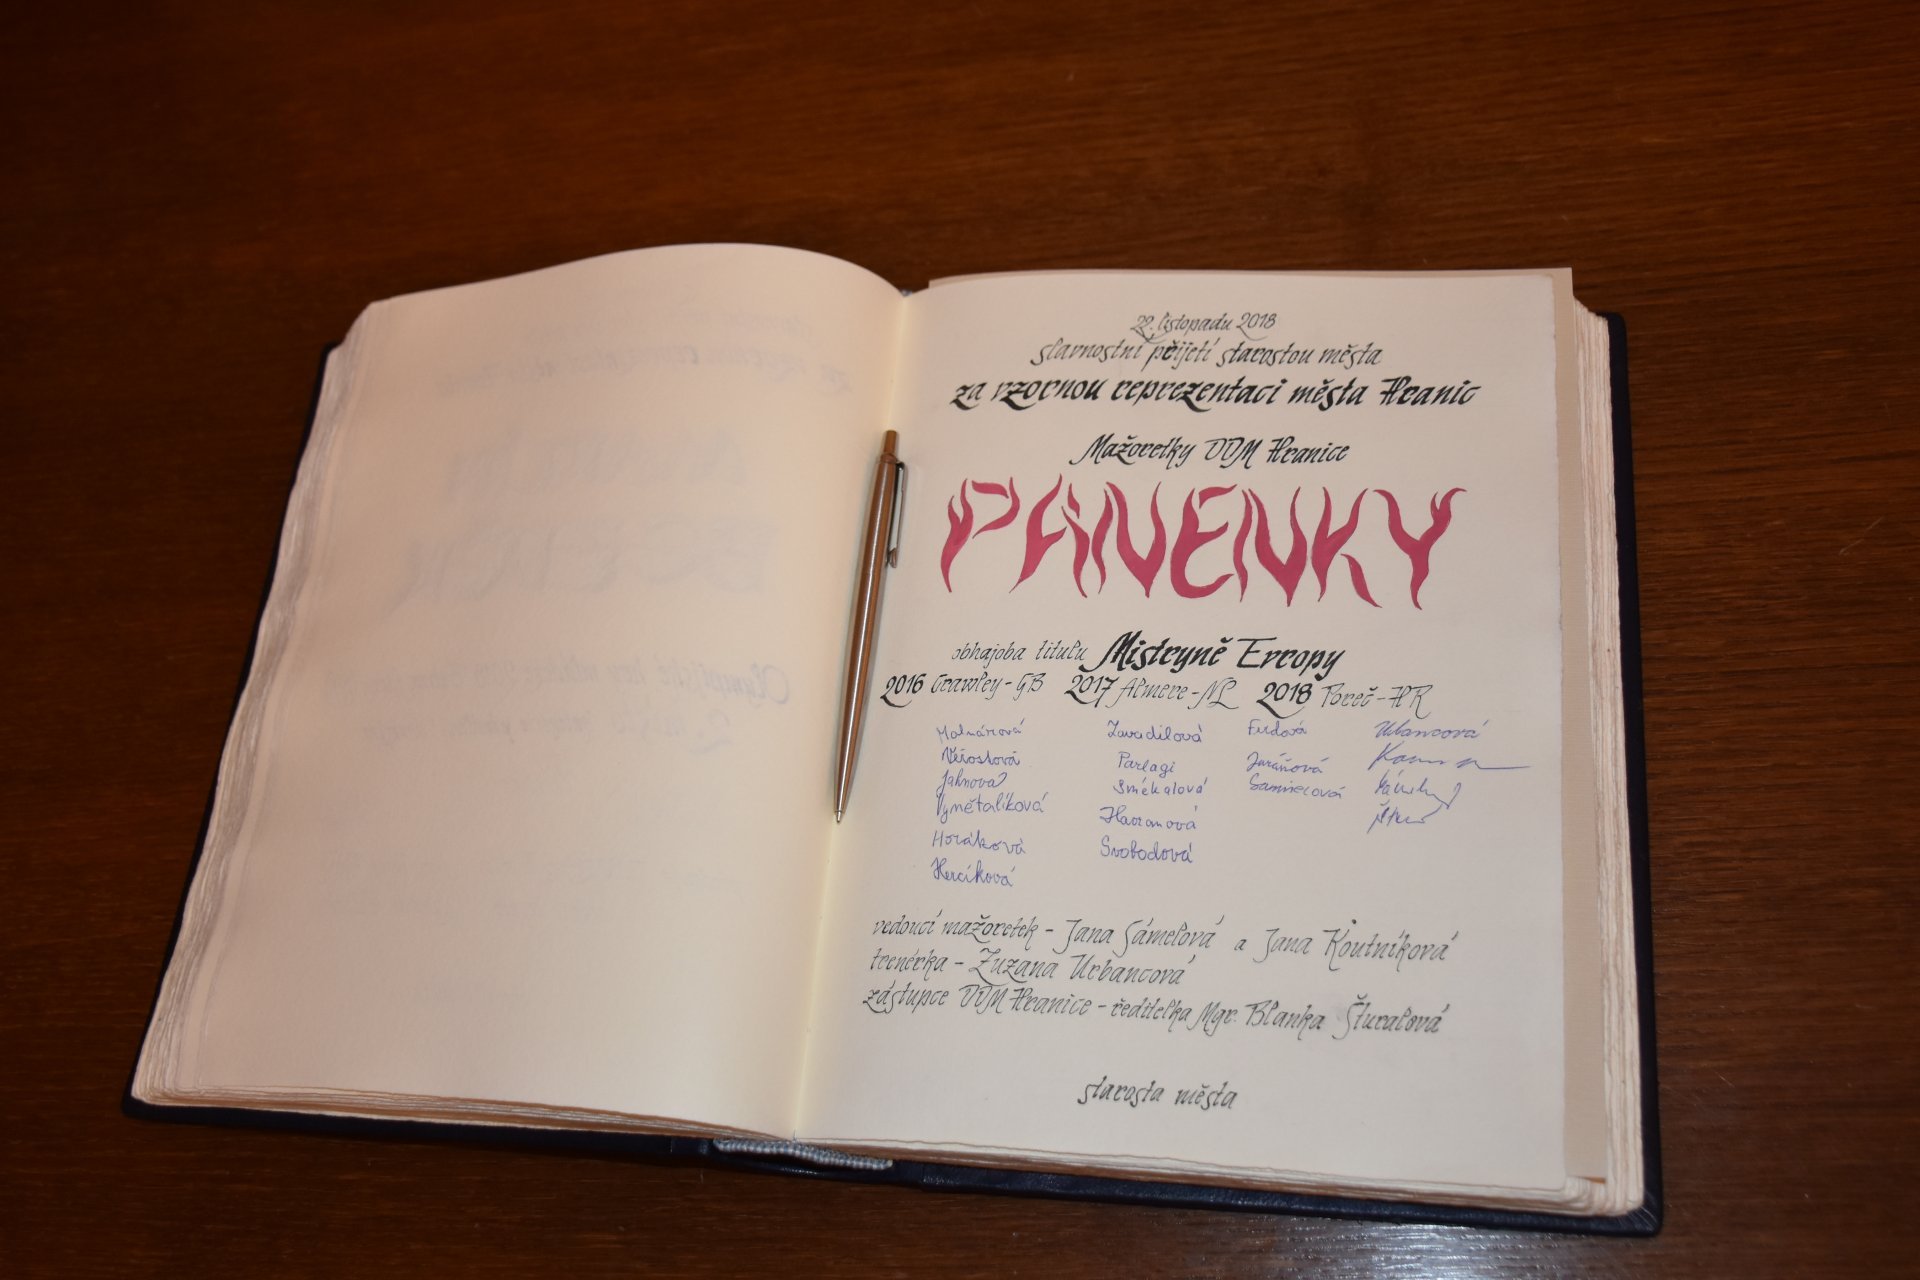 22. listopadu 2018
slavnostní přijetí starostou města
za vzornou reprezentaci města Hranic
Mažoretky DDM Hranice
PANENKY
obhajoba titulu Mistryně Evropy
2016 Crawley - GB 2017 Almere - NL 2018 Poreč - HR
Molnárová Zavadilová Fudová Urbancová
Parlagi Juráňová
Jahnová Smékalová
Vymětalíková Havranová
Horáková Svobodová
Hercíková
vedoucí mažoretek - Jana Sámelová a Jana Koutníková
trenérka - Zuzana Urbancová
zástupce DDM Hranice - ředitelka Mgr. Blanka Šturalová
starosta města